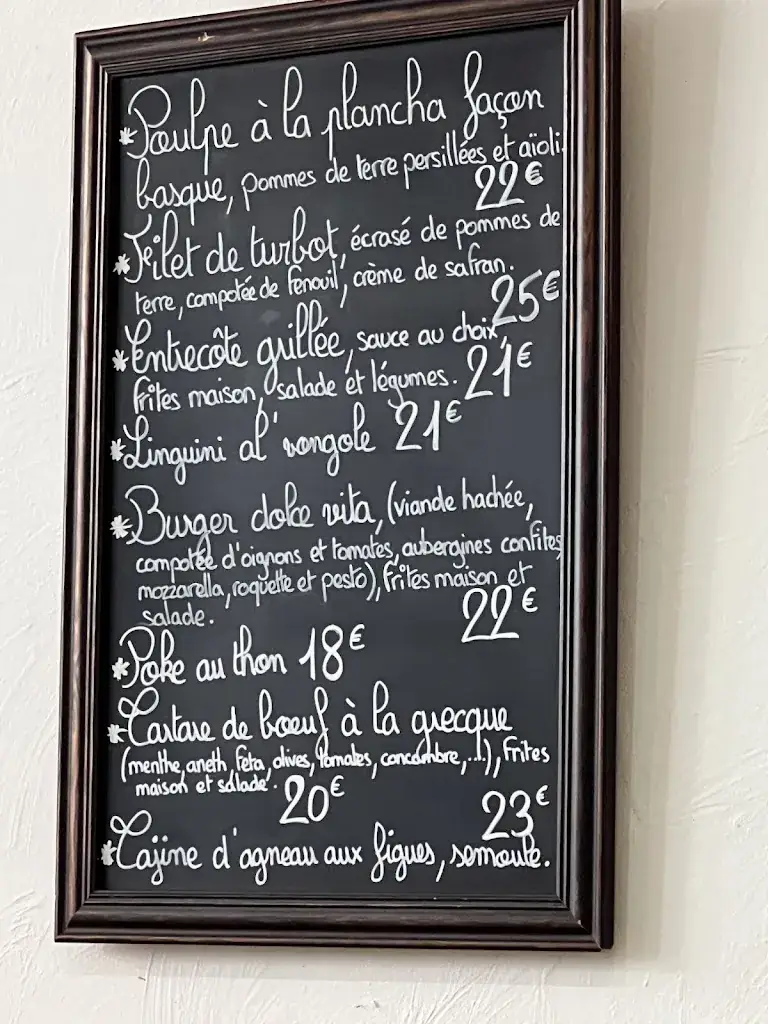 *Poulpe à la plancha façon
basque, pommes de terre persillées et aïoli.
22€
*Filet de turbot, écrasé de pommes de
terre, compotée de fenouil, crème de safran.
25€
*Entrecôte grillée, sauce au choix,
frites maison, salade et légumes. 21€
*Linguini al' vongole 21€
*Burger dolce vita, (viande hachée,
compotée d'oignons et tomates, aubergines confites,
mozzarella, roquette et pesto), frites maison et
salade. 22€
*Poke au thon 18€
*Tartare de boeuf à la grecque
(menthe, aneth, feta, olives, tomates, concombre,...), frites
maison et salade. 20€
23€
*Tajine d'agneau aux figues, semoule.